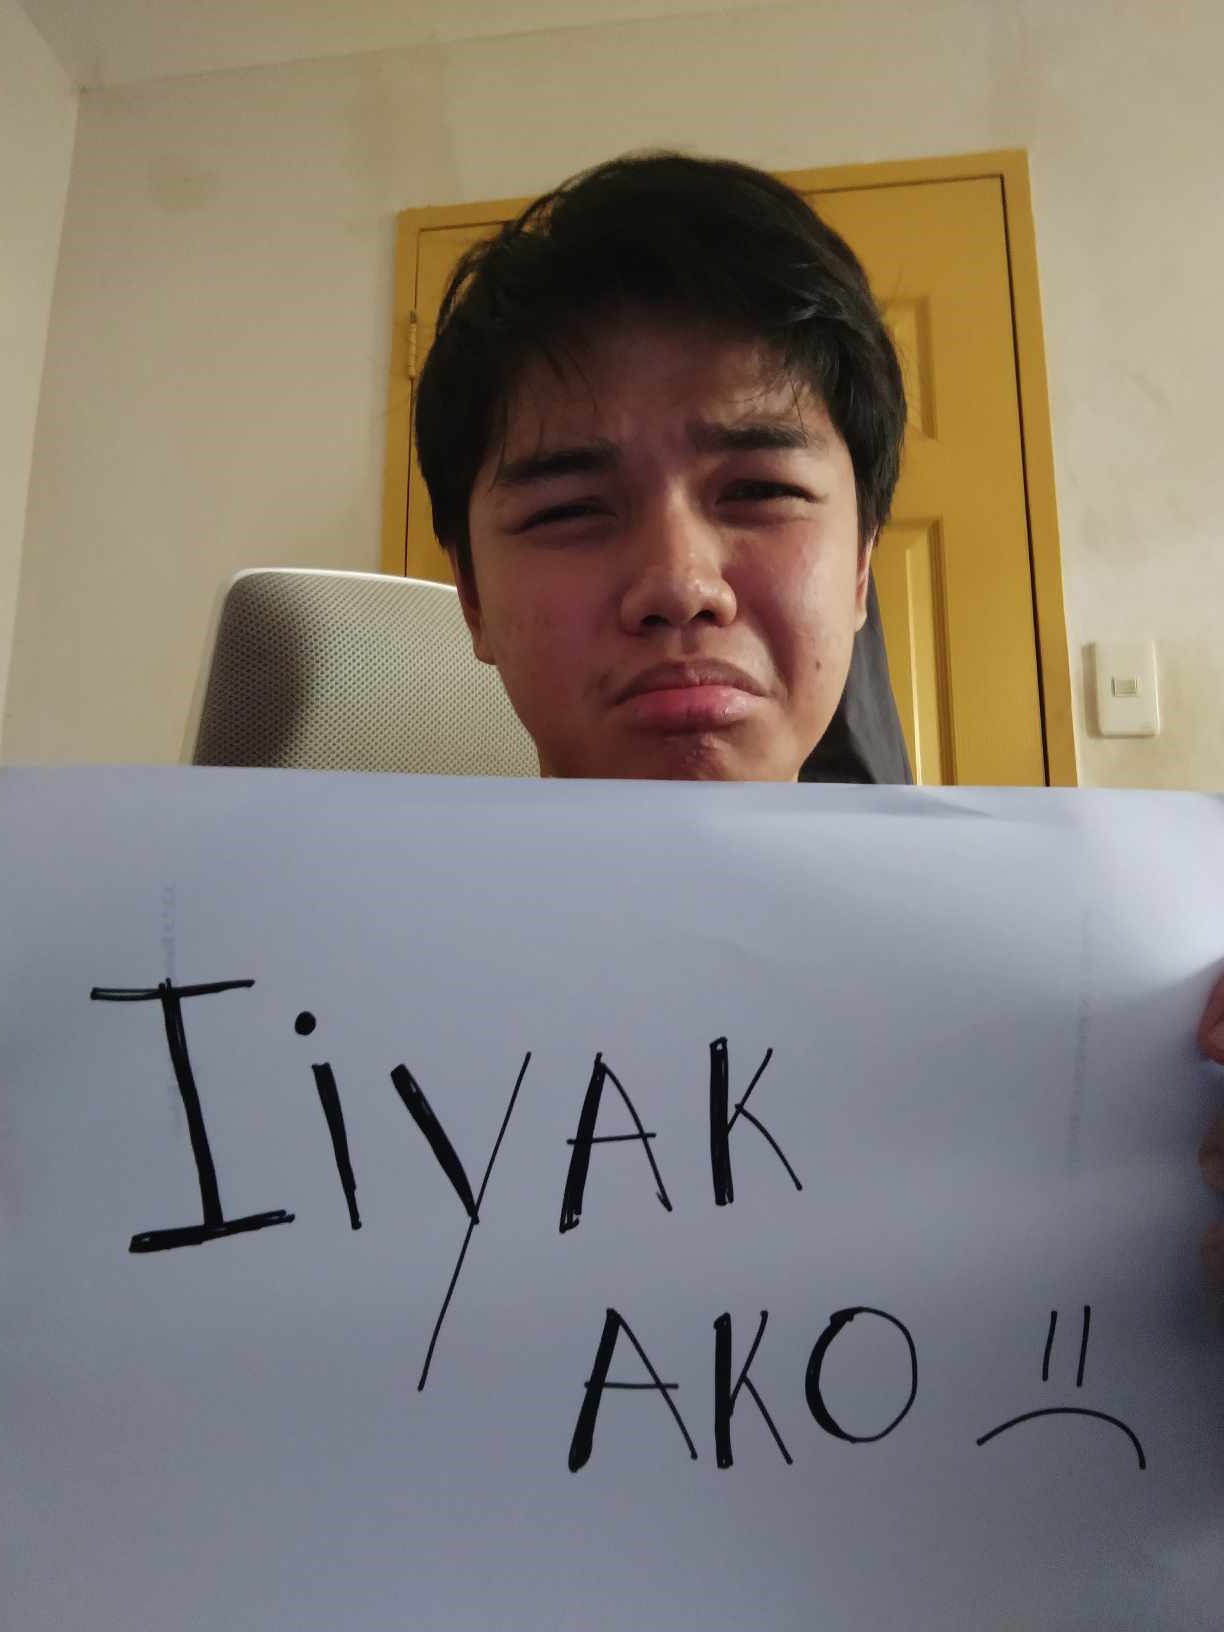 IiyAK
AKO =(